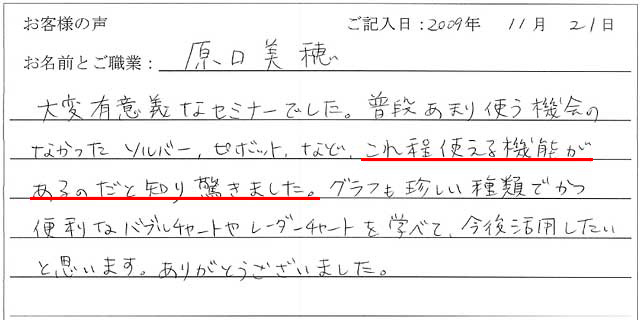 お客様の声 ご記入日:2009年 11月 21日
お名前とご職業: 原口美穂
大変有意義なセミナーでした。普段あまり使う機会の
なかったソルバー,ピボット,など,これ程使える機能が
あるのだと知り驚きました。グラフも珍しい種類でかつ
便利なバブルチャートやレーダーチャートを学べて、今後活用したい
と思います。ありがとうございました。